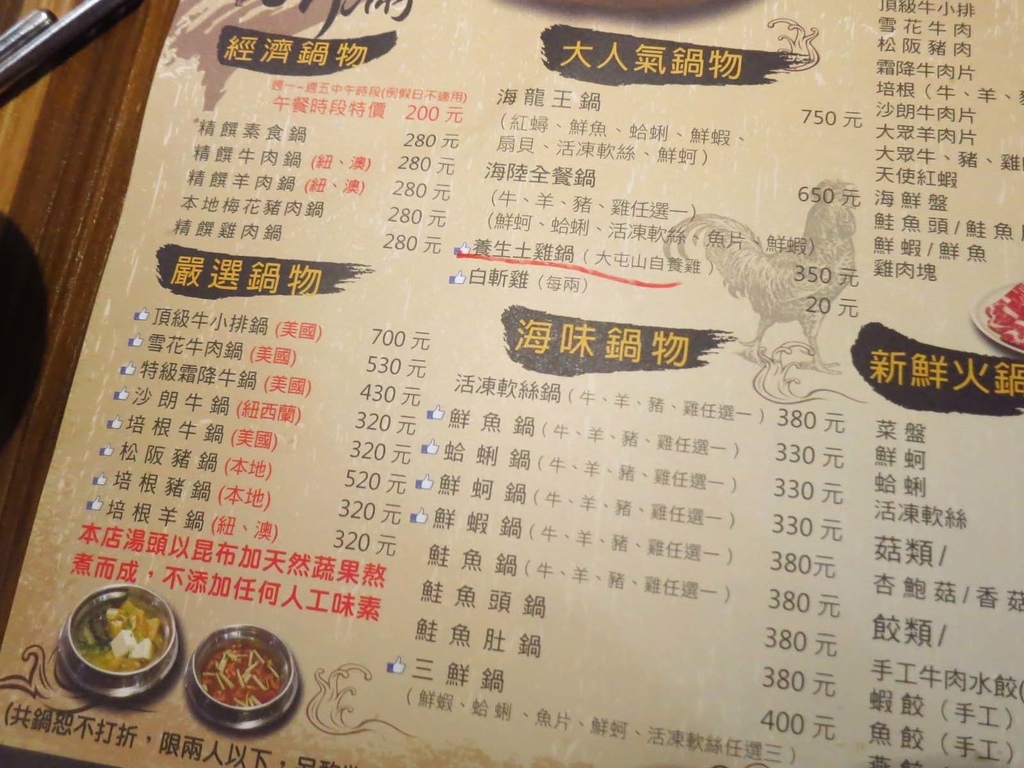 經濟鍋物
週一~週五中午時段(例假日不適用)
午餐時段特價 200元
精饌素食鍋 280元
精饌牛肉鍋(紐、澳) 280元
精饌羊肉鍋(紐、澳) 280元
本地梅花豬肉鍋 280元
精饌雞肉鍋 280元
嚴選鍋物
頂級牛小排鍋(美國) 700元
雪花牛肉鍋(美國) 530元
特級霜降牛鍋(美國) 430元
沙朗牛鍋(紐西蘭) 320元
培根牛鍋(美國) 320元
松阪豬鍋(本地) 520元
培根豬鍋(本地) 320元
培根羊鍋(紐、澳) 320元
本店湯頭以昆布加天然蔬果熬
煮而成，不添加任何人工味素
(共鍋恕不打折，限兩人以下，
大人氣鍋物
海龍王鍋 750元
(紅蟳、鮮魚、蛤蜊、鮮蝦、
扇貝、活凍軟絲、鮮蚵)
海陸全餐鍋 650元
(牛、羊、豬、雞任選一)
(鮮蚵、蛤蜊、活凍軟絲、魚片、鮮蝦)
養生土雞鍋(大屯山自養雞) 350元
白斬雞(每兩) 20元
海味鍋物
活凍軟絲鍋(牛、羊、豬、雞任選一) 380元
鮮魚鍋(牛、羊、豬、雞任選一) 330元
蛤蜊鍋(牛、羊、豬、雞任選一) 330元
鮮蚵鍋(牛、羊、豬、雞任選一) 330元
鮮蝦鍋(牛、羊、豬、雞任選一) 380元
鮭魚鍋(牛、羊、豬、雞任選一) 380元
鮭魚頭鍋 380元
鮭魚肚鍋 380元
三鮮鍋 400元
(鮮蝦、蛤蜊、魚片、鮮蚵、活凍軟絲任選三)
頂級牛小排
雪花牛肉
松阪豬肉
霜降牛肉片
培根(牛、羊、
沙朗牛肉片
大眾羊肉片
大眾牛、豬、雞
天使紅蝦
海鮮盤
鮭魚頭/鮭魚
鮮蝦/鮮魚
雞肉塊
新鮮火鍋
菜盤
鮮蚵
蛤蜊
活凍軟絲
菇類/
杏鮑菇/香菇
餃類/
手工牛肉水餃
蝦餃(手工)
魚餃(手工)